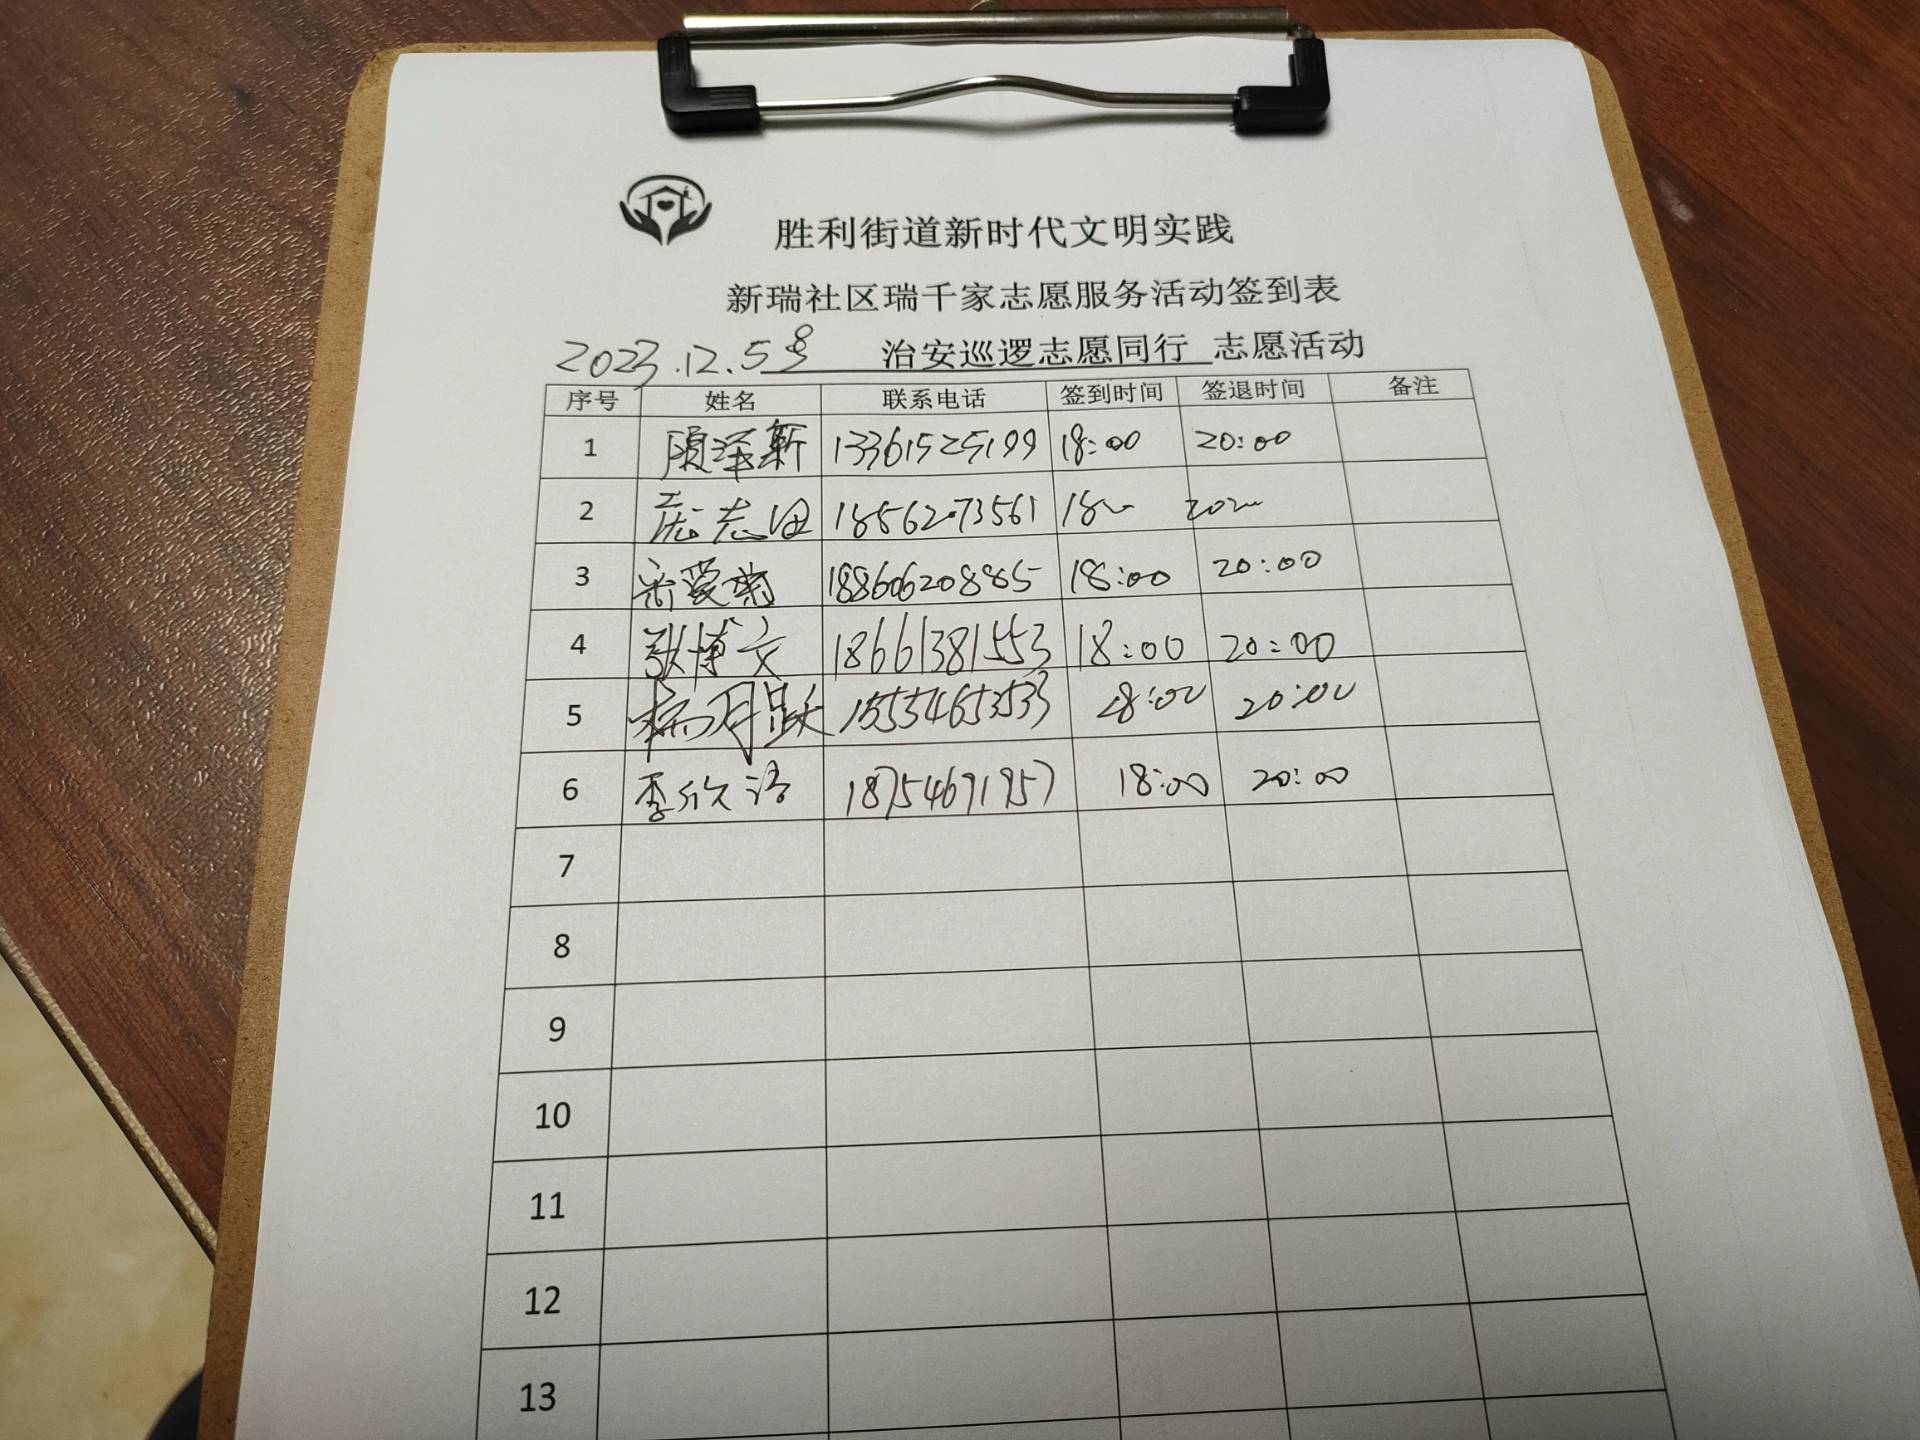 胜利街道新时代文明实践
新瑞社区瑞千家志愿服务活动签到表
2023.12.5号 治安巡逻志愿同行 志愿活动
序号 姓名 联系电话 签到时间 签退时间 备注
1 13361525199 18:00 20:00
2 18562073561
3 188606208885 18:00 20:00
4 张博文 18661381553 18:00 20:00
5 杨月跃 15554653533 18:00 20:00
6 李欣语 18754691957 18:00 20:00
7
8
9
10
11
12
13